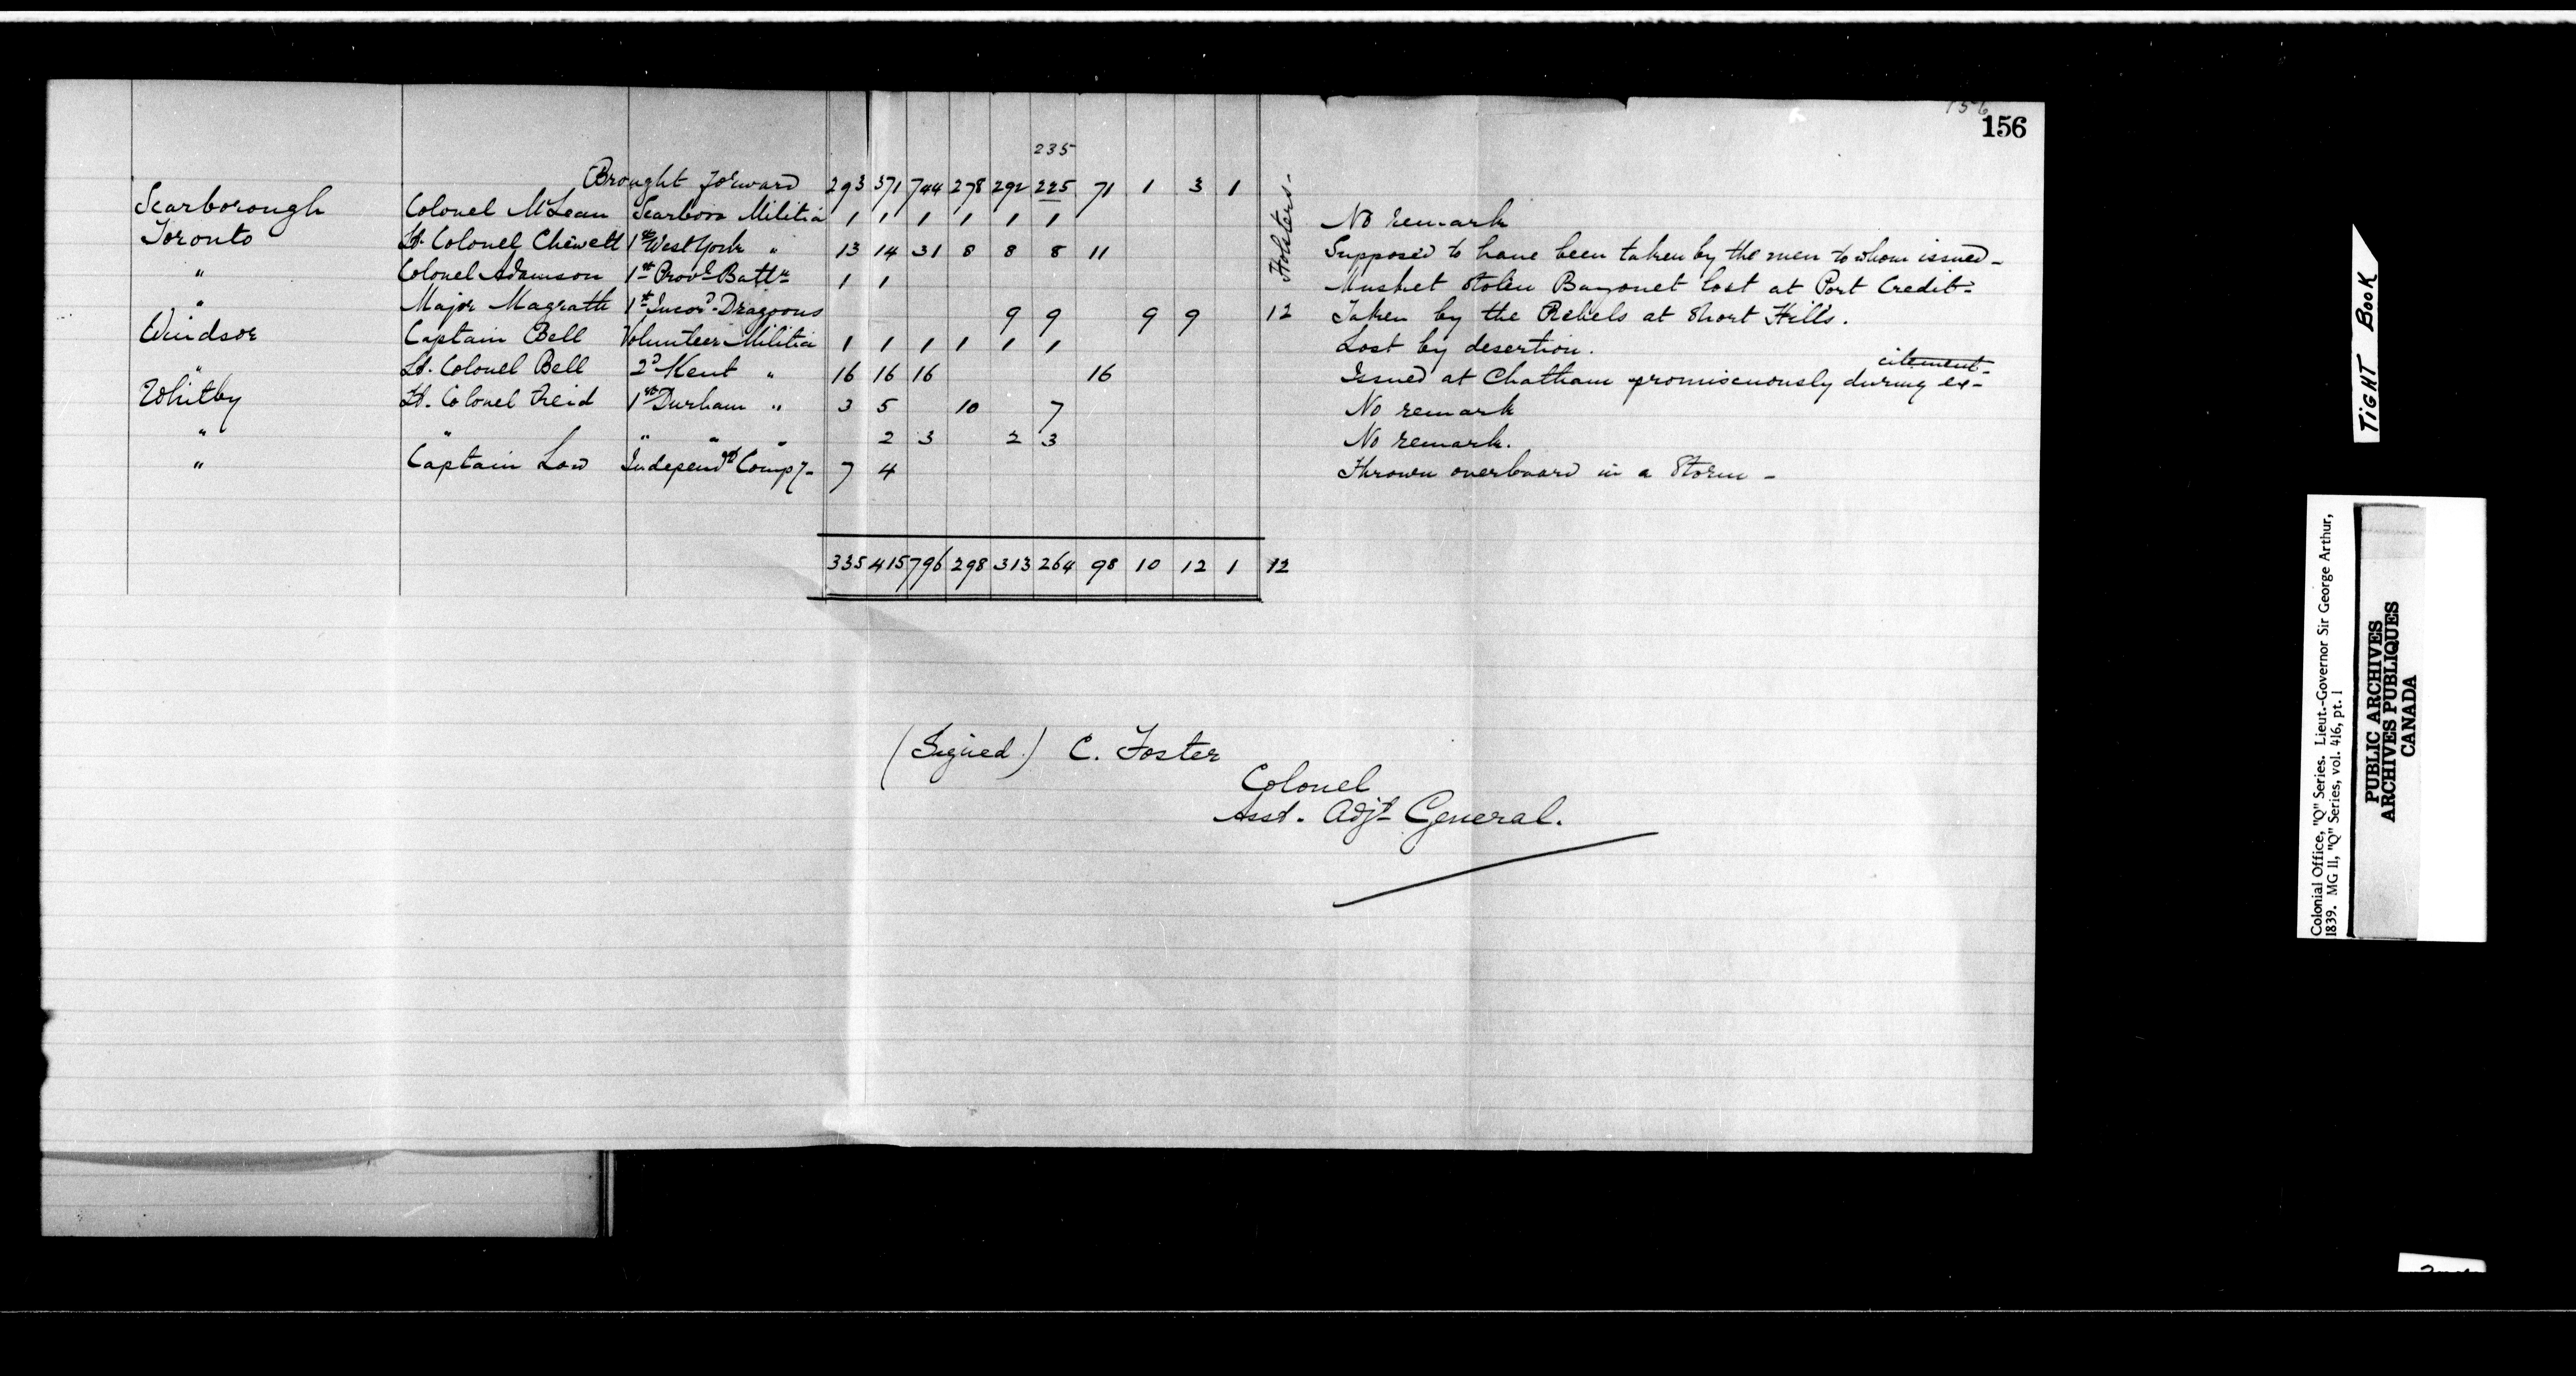 156
156
235
Brought forward 293 371 744 278 292 225 71 1 3 1 Holsters-
Scarborough Colonel McLean Scarboro Militia 1 1 1 1 1 1 No remark
Toronto Lt. Colonel Chewett 1st West York " 13 14 31 8 8 8 11 Supposed to have been taken by the men to whom issued-
" Colonel Adamson 1st Provl Battn 1 1 Musket stolen Bayonet lost at Port Credit-
" Major Magrath 1st Incord Dragoons 9 9 9 9 12 Taken by the Rebels at Short Hills.
Windsor Captain Bell Volunteer Militia 1 1 1 1 1 1 Lost by desertion.
" Lt. Colonel Bell 2d Kent " 16 16 16 16 Issued at Chatham promiscuously during ex-
citement-
Whitby Lt. Colonel Reid 1st Durham " 3 5 10 7 No remark
" " " " " 2 3 2 3 No remark.
" Captain Low Independt Compy- 7 4 Thrown overboard in a Storm-
335 415 796 298 313 264 98 10 12 1 12
(Signed) C. Foster
Colonel
Asst. Adjt General.
TIGHT BOOK
Colonial Office, "Q" Series. Lieut.-Governor Sir George Arthur,
1839. MG 11, "Q" Series, vol. 416, pt. 1
PUBLIC ARCHIVES
ARCHIVES PUBLIQUES
CANADA